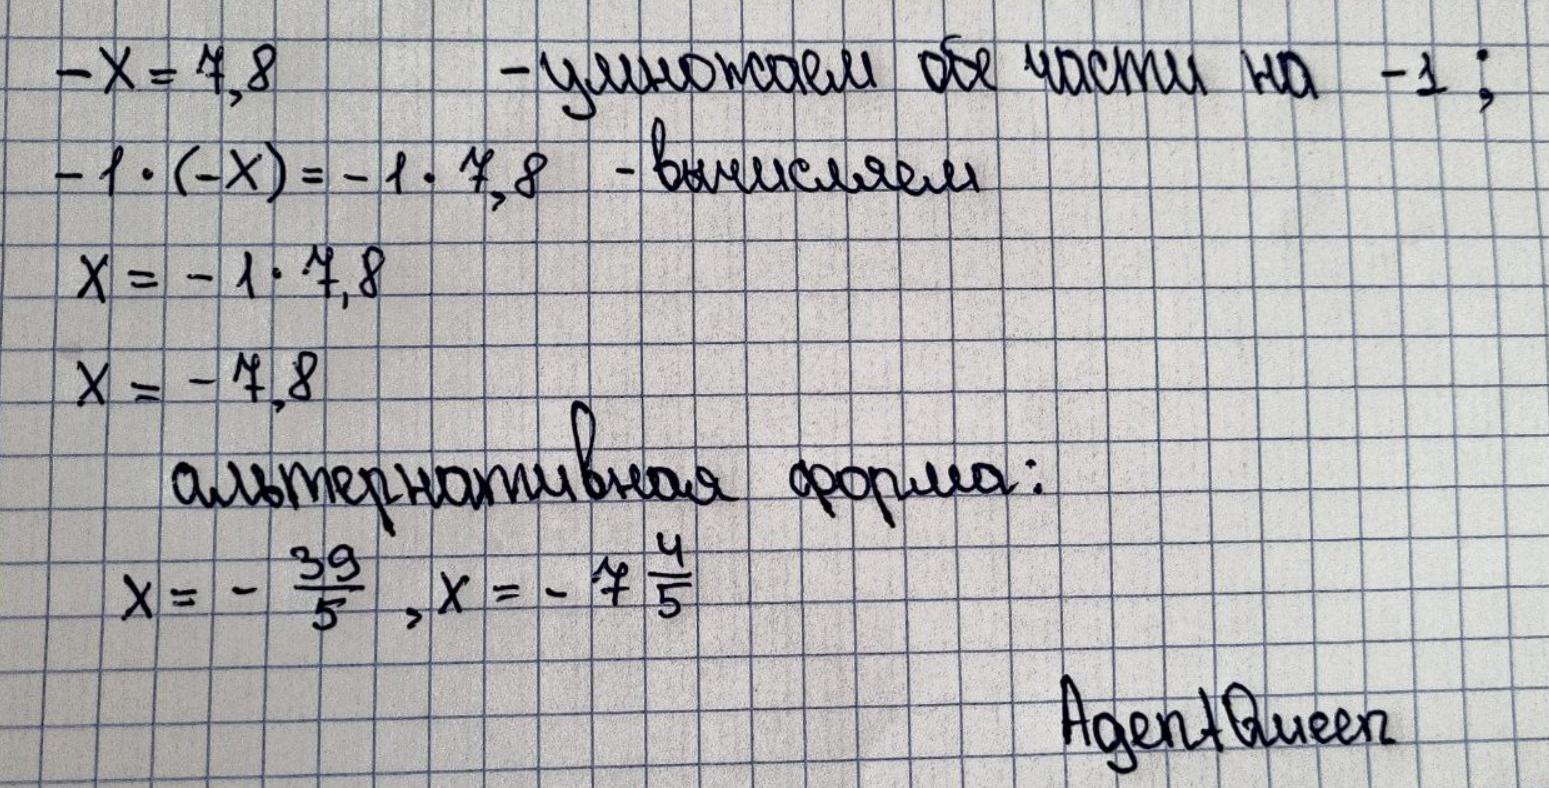 -x = 7,8 - умножаем обе части на -1 ;
-1 · (-x) = -1 · 7,8 - вычисляем
x = -1 · 7,8
x = -7,8
альтернативная форма:
x = - 39/5 , x = - 7 4/5
AgentQueen